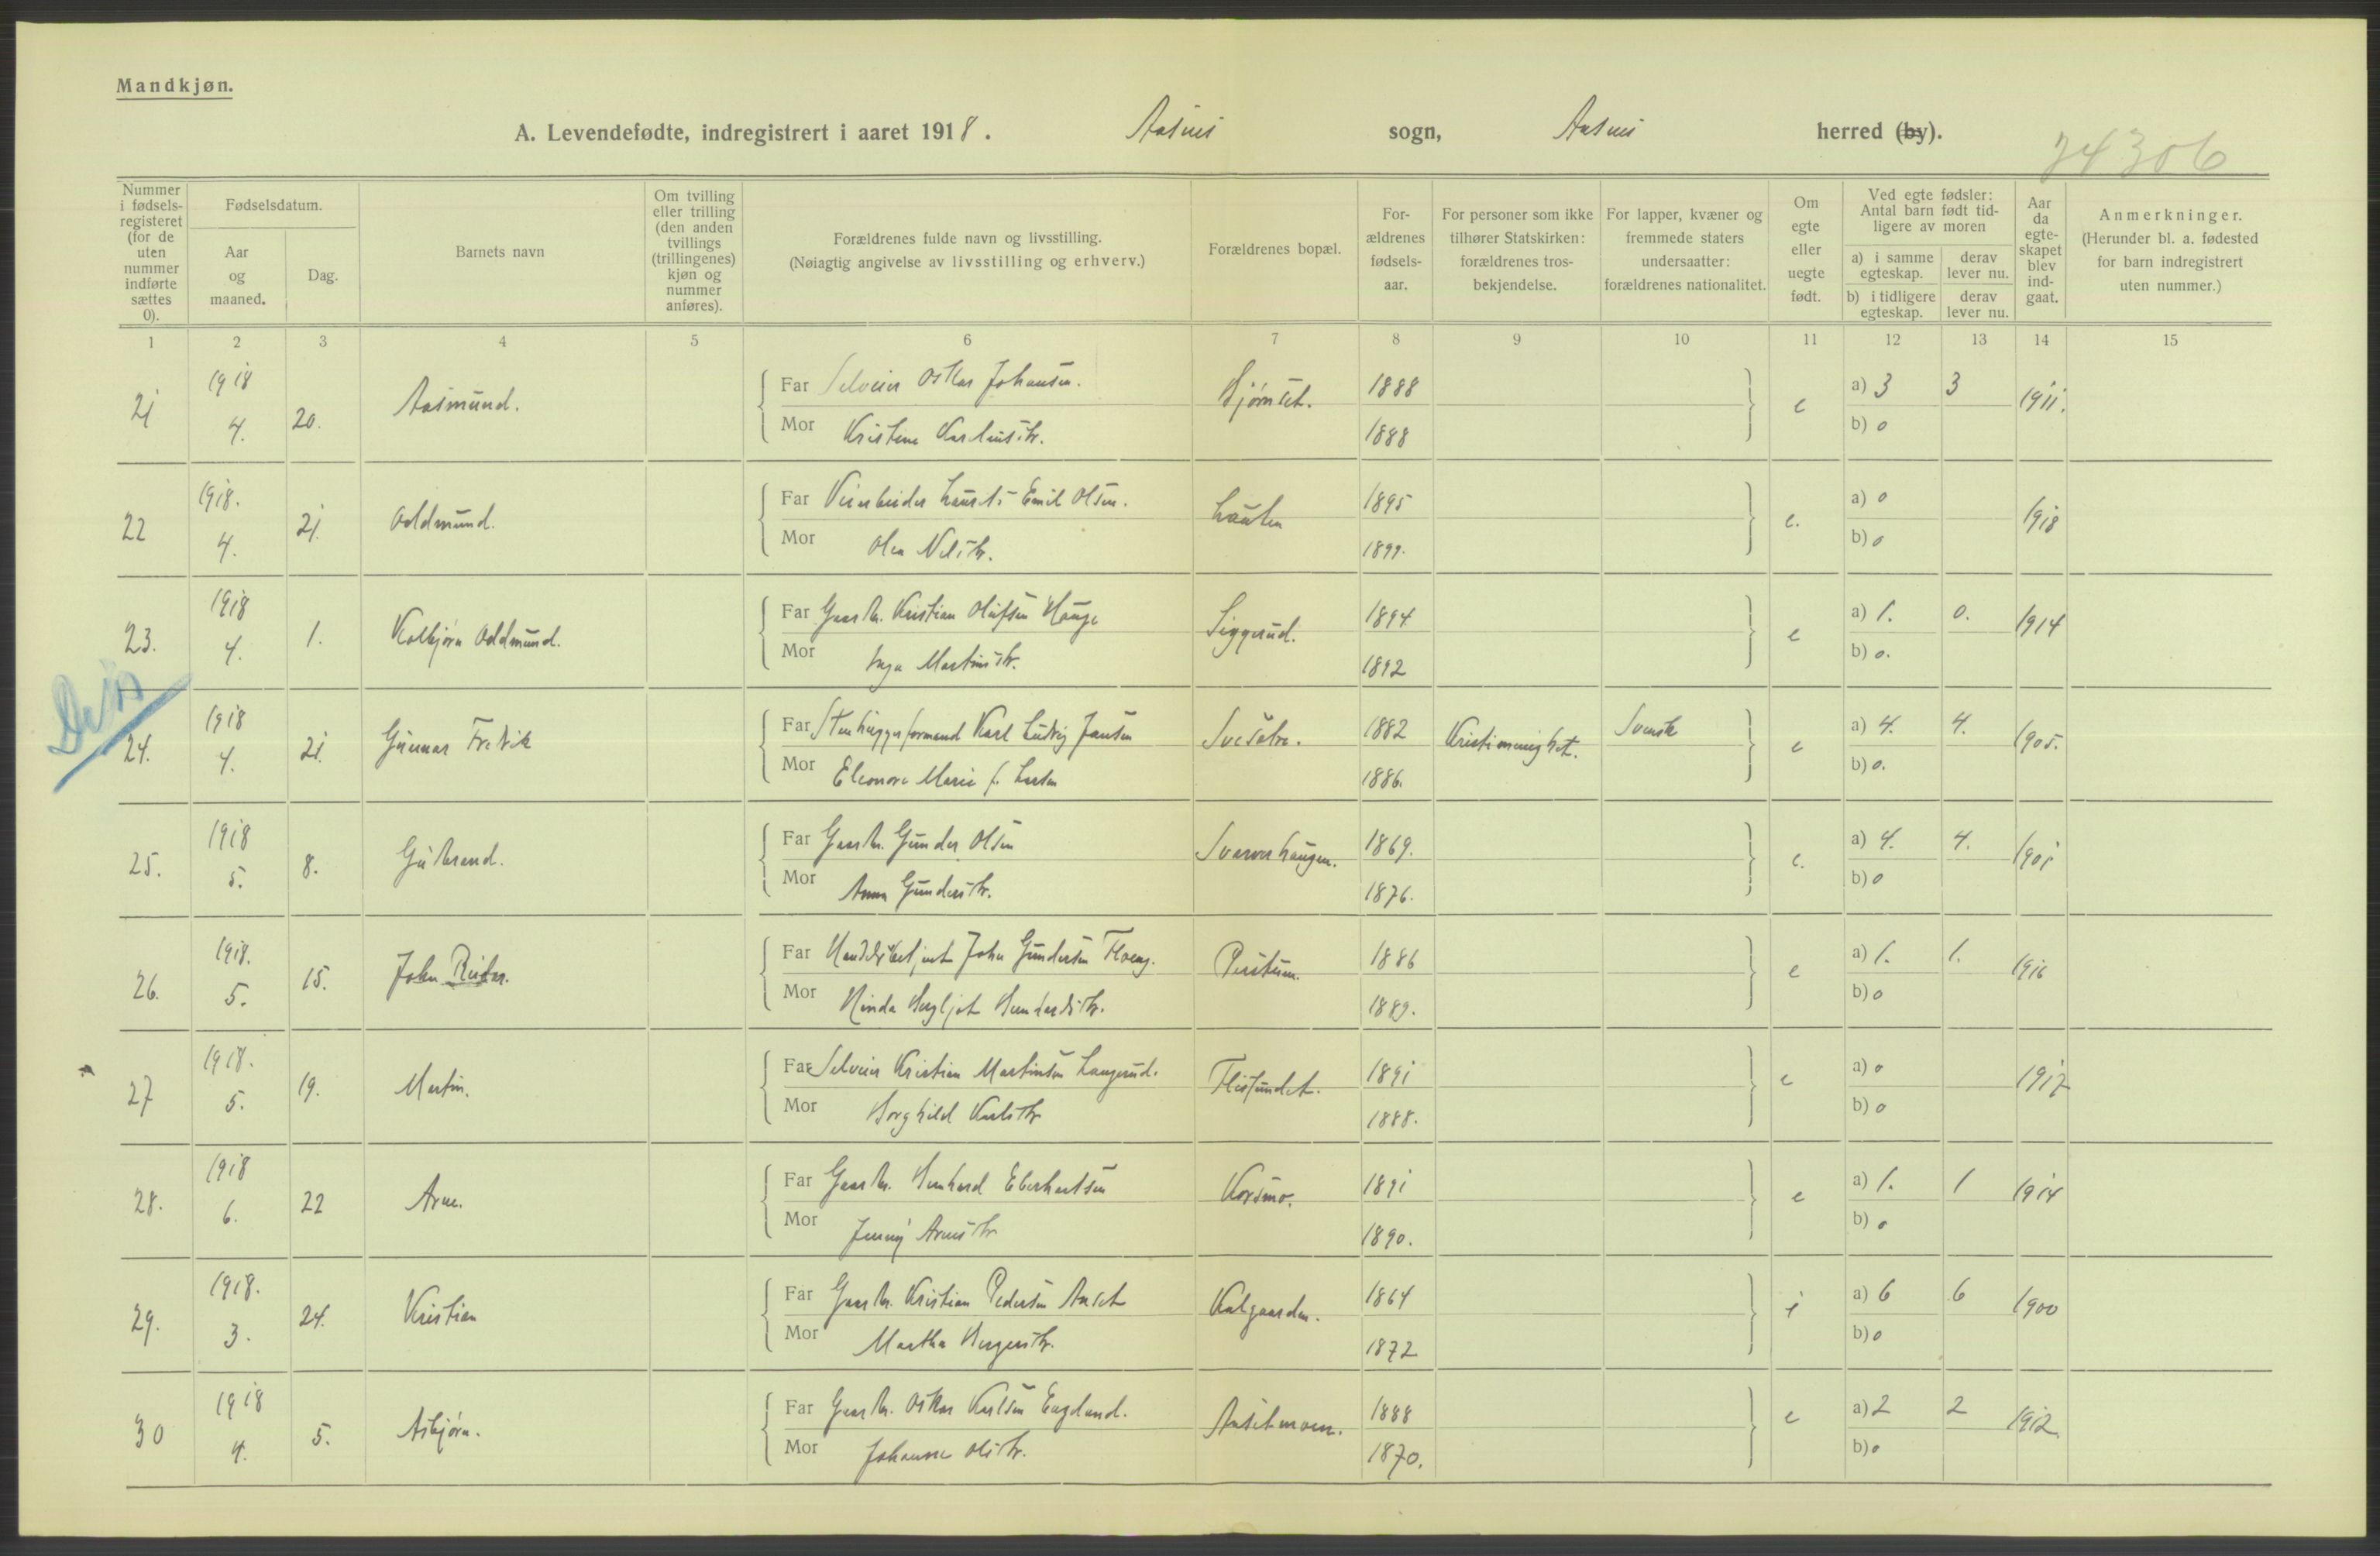 Mandkjøn.
A. Levendefødte, indregistrert i aaret 1918. Aasnes sogn, Aasnes herred (by).
24306
Nummer i fødsels-registeret (for de uten nummer indførte sættes 0).
Fødselsdatum.
Aar og maaned.
Dag.
Barnets navn
Om tvilling eller trilling (den anden tvillings (trillingenes) kjøn og nummer anføres).
Forældrenes fulde navn og livsstilling.
(Nøiagtig angivelse av livsstilling og erhverv.)
Forældrenes bopæl.
For-ældrenes fødsels-aar.
For personer som ikke tilhører Statskirken: forældrenes tros-bekjendelse.
For lapper, kvæner og fremmede staters undersaatter: forældrenes nationalitet.
Om egte eller uegte født.
Ved egte fødsler: Antal barn født tid-ligere av moren
a) i samme egteskap.
derav lever nu.
b) i tidligere egteskap.
derav lever nu.
Aar da egte-skapet blev ind-gaat.
Anmerkninger.
(Herunder bl. a. fødested for barn indregistrert uten nummer.)
1 2 3 4 5 6 7 8 9 10 11 12 13 14 15
21 1918 4. 20. Aasmund.
Far Selveier Oskar Johansen. 1888 e a) 3 3 1911.
Mor Kristine 1888 b) 0
22 1918. 4. 21. Oddmund.
Far Emil Olsen. 1895 e. a) 0 1918
Mor Olea Nilsdtr. 1899. b) 0
23. 1918 4. 1. Kolbjørn Oddmund.
Far Gaardbr. Kristian Olufsen Hauge Siggerud. 1894 e a) 1. 0. 1914
Mor Inga Martinsdtr. 1892 b) 0.
24. 1918 4. 21. Gunnar Fredrik
Far Stenhuggerformand Karl Ludvig Jansen 1882 Kristimenighet. Svensk e a) 4. 4. 1905.
Mor Eleonore Marie f. Larsen 1886. b) 0.
25. 1918 5. 8. Gudbrand.
Far Gaardbr. Gunder Olsen Svarverhaugen. 1869. e. a) 4. 4. 1901
Mor Anna Gundersdtr. 1876. b) 0
26. 1918. 5. 15. John Reidar.
Far Handelsbetjent John Gundersen Floeng. 1886 e a) 1. 1. 1916
Mor Hinda Bergljot 1889. b) 0
27 1918. 5. 19. Martin.
Far Selveier Kristian Martinsen Langerud. Flisfundet. 1891 e a) 0 1917
Mor Borghild Karlsdtr 1888. b) 0
28. 1918 6. 22 Arne.
Far Gaardbr. Bernhard Eberhartsen Korsmo. 1891 e a) 1. 1 1914
Mor Jenny Arnesdtr 1890. b) 0
29. 1918. 3. 24. Kristian
Far Gaardbr. Kristian Pedersen Aaset Kalgaarden. 1864 a) 6 6 1900
Mor Martha Bergersdtr. 1872 b) 0
30 1918 4. 5. Asbjørn.
Far Gaardbr. Oskar Karlsen Englund. Aasetmoen. 1888 e a) 2 2 1912.
Mor Johanne Olsdtr. 1870. b) 0